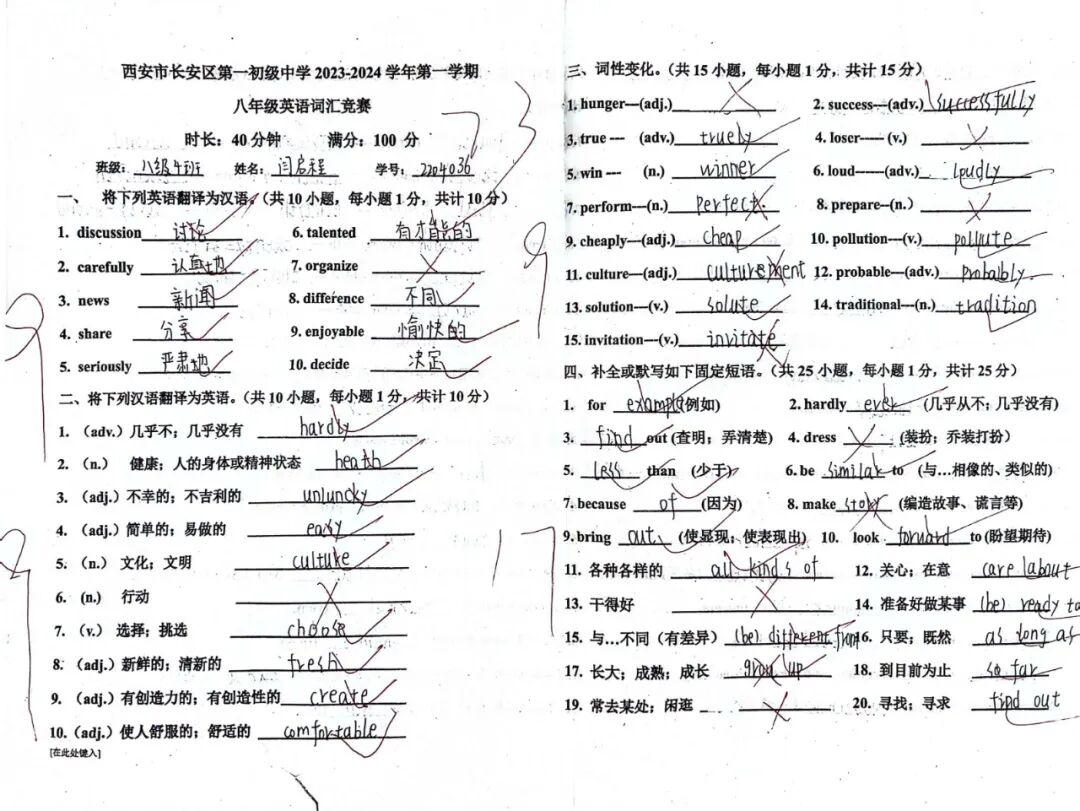 西安市长安区第一初级中学 2023-2024 学年第一学期
八年级英语词汇竞赛
时长：40 分钟 满分：100 分
73
班级：八级4班 姓名：闫启程 学号：2204036
一、 将下列英语翻译为汉语。（共 10 小题，每小题 1 分，共计 10 分）
9
1. discussion 讨论 6. talented 有才能的
2. carefully 认真地 7. organize
3. news 新闻 8. difference 不同
4. share 分享 9. enjoyable 愉快的
5. seriously 严肃地 10. decide 决定
二、将下列汉语翻译为英语。（共 10 小题，每小题 1 分，共计 10 分）
1. （adv.）几乎不；几乎没有 hardly
2. （n.） 健康；人的身体或精神状态 heath
3. （adj.）不幸的；不吉利的 unluncky
4. （adj.）简单的；易做的 easy
5. （n.） 文化；文明 culture
6. (n.) 行动
7. （v.） 选择；挑选 choose
8. （adj.）新鲜的；清新的 fresh
9. （adj.）有创造力的；有创造性的 create
10.（adj.）使人舒服的；舒适的 comfortable
[在此处键入]
三、词性变化。（共 15 小题，每小题 1 分，共计 15 分）
9
1. hunger---(adj.) 2. success---(adv.) successfully
3. true --- (adv.) truely 4. loser----- (v.)
5. win --- (n.) winner 6. loud------(adv.) loudly
7. perform---(n.) perfect 8. prepare--(n.)
9. cheaply---(adj.) cheap 10. pollution---(v.) pollute
11. culture---(adj.) culturement 12. probable---(adv.) probalbly
13. solution---(v.) solute 14. traditional---(n.) tradition
15. invitation---(v.) invitate
四、补全或默写如下固定短语。（共 25 小题，每小题 1 分，共计 25 分）
17
1. for example(例如) 2. hardly ever (几乎从不；几乎没有)
3. find out (查明；弄清楚) 4. dress (装扮；乔装打扮)
5. less than (少于) 6. be similar to (与…相像的、类似的)
7. because of (因为) 8. make story (编造故事、谎言等)
9. bring out (使显现；使表现出) 10. look forward to (盼望期待)
11. 各种各样的 all kinds of 12. 关心；在意 care about
13. 干得好 14. 准备好做某事 (be) ready to
15. 与…不同（有差异） (be) different from 16. 只要；既然 as long as
17. 长大；成熟；成长 grow up 18. 到目前为止 so far
19. 常去某处；闲逛 20. 寻找；寻求 find out